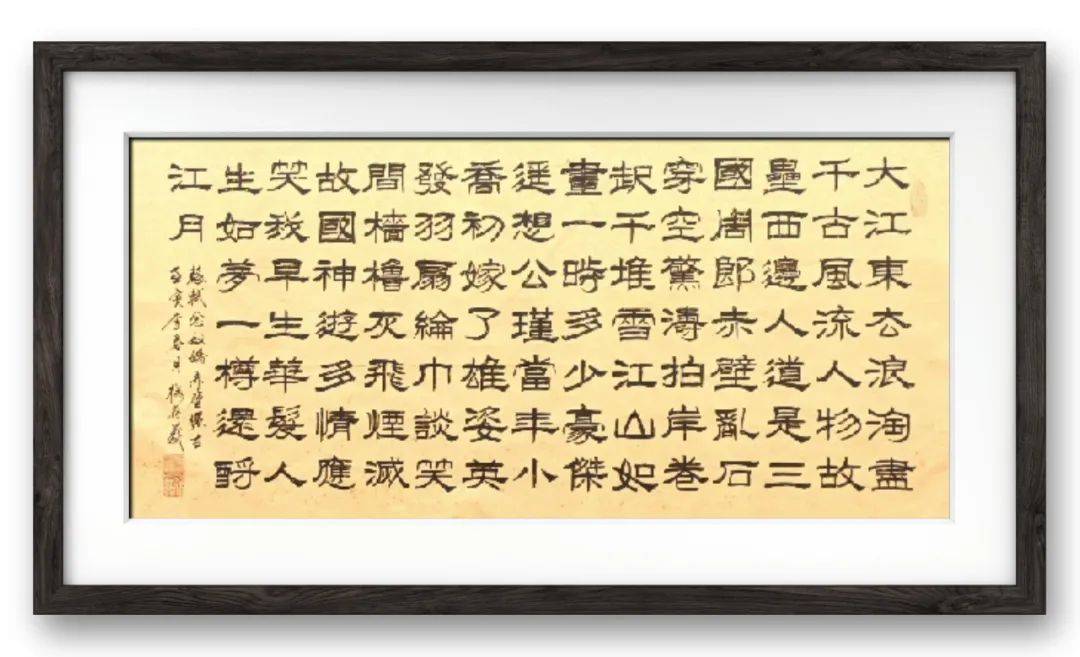 大江東去浪淘盡
千古風流人物故
壘西邊人道是三
國周郎赤壁亂石
穿空驚濤拍岸卷
起千堆雪江山如
畫一時多少豪傑
遥想公瑾當年小
喬初嫁了雄姿英
發羽扇綸巾談笑
間檣櫓灰飛煙滅
故國神遊多情應
笑我早生華髮人
生如夢一樽還酹
江月
蘇軾念奴嬌赤壁懷古
寅春月